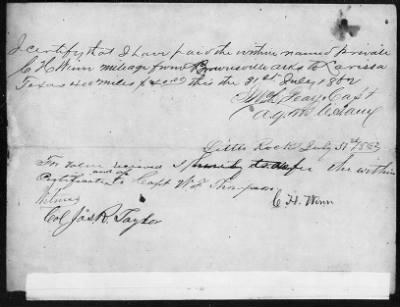 I certify that I have paid the within named private
C H Winn mileage from Brownsville Arks to Larissa
Texas 400 miles this the 31st July 1862
Capt
Little Rock July 31st 1862
For value received I hereby transfer the within
Certificate to Capt W F Thompson
and
Witness
C. H. Winn
Col Jas R. Taylor